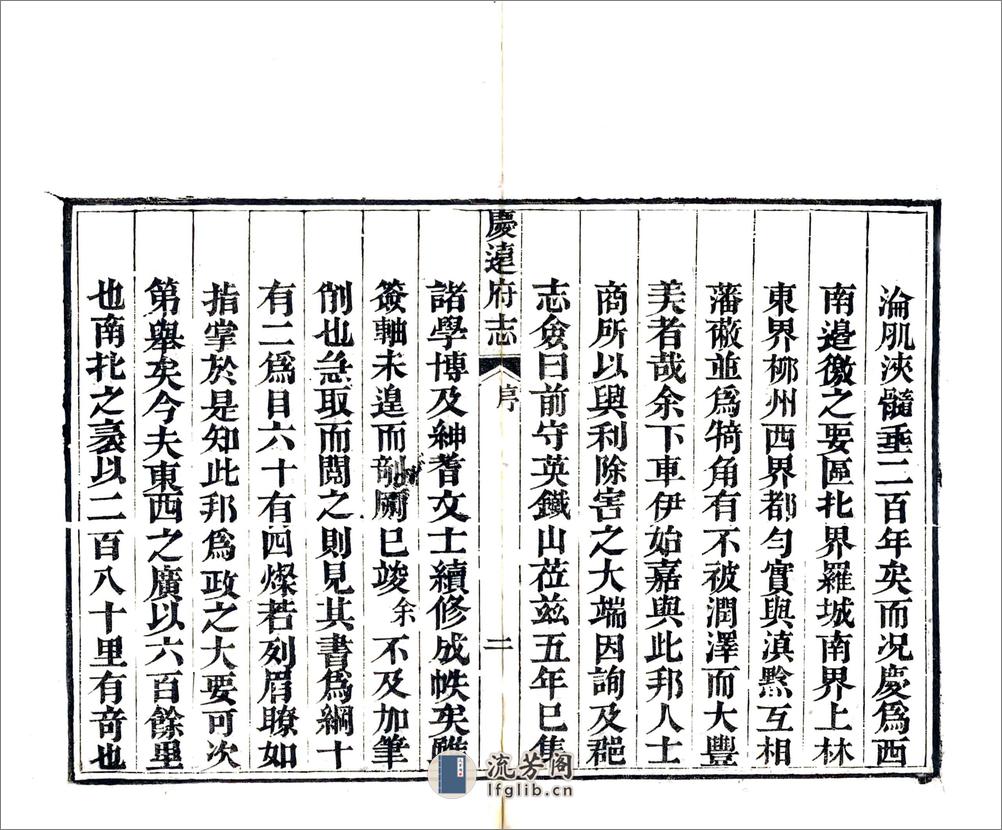 淪肌浹髓垂二百年矣而况慶爲西
南邉徼之要區北界羅城南界上林
東界栁州西界都匀實與滇黔互相
藩蔽並爲犄角有不被潤澤而大豐
美者哉余下車伊始嘉與此邦人士
商所以興利除害之大端因詢及郡
志僉曰前守英鐵山莅兹五年已集
慶遠府志
序
二
諸學博及紳耆文士續修成帙矣雖
簽軸未遑而剞劂已竣余不及加筆
削也急取而閲之則見其書爲綱十
有二爲目六十有四燦若列眉瞭如
指掌於是知此邦爲政之大要可次
第舉矣今夫東西之廣以六百餘里
也南北之袤以二百八十里有奇也
流芳阁
lfglib.cn